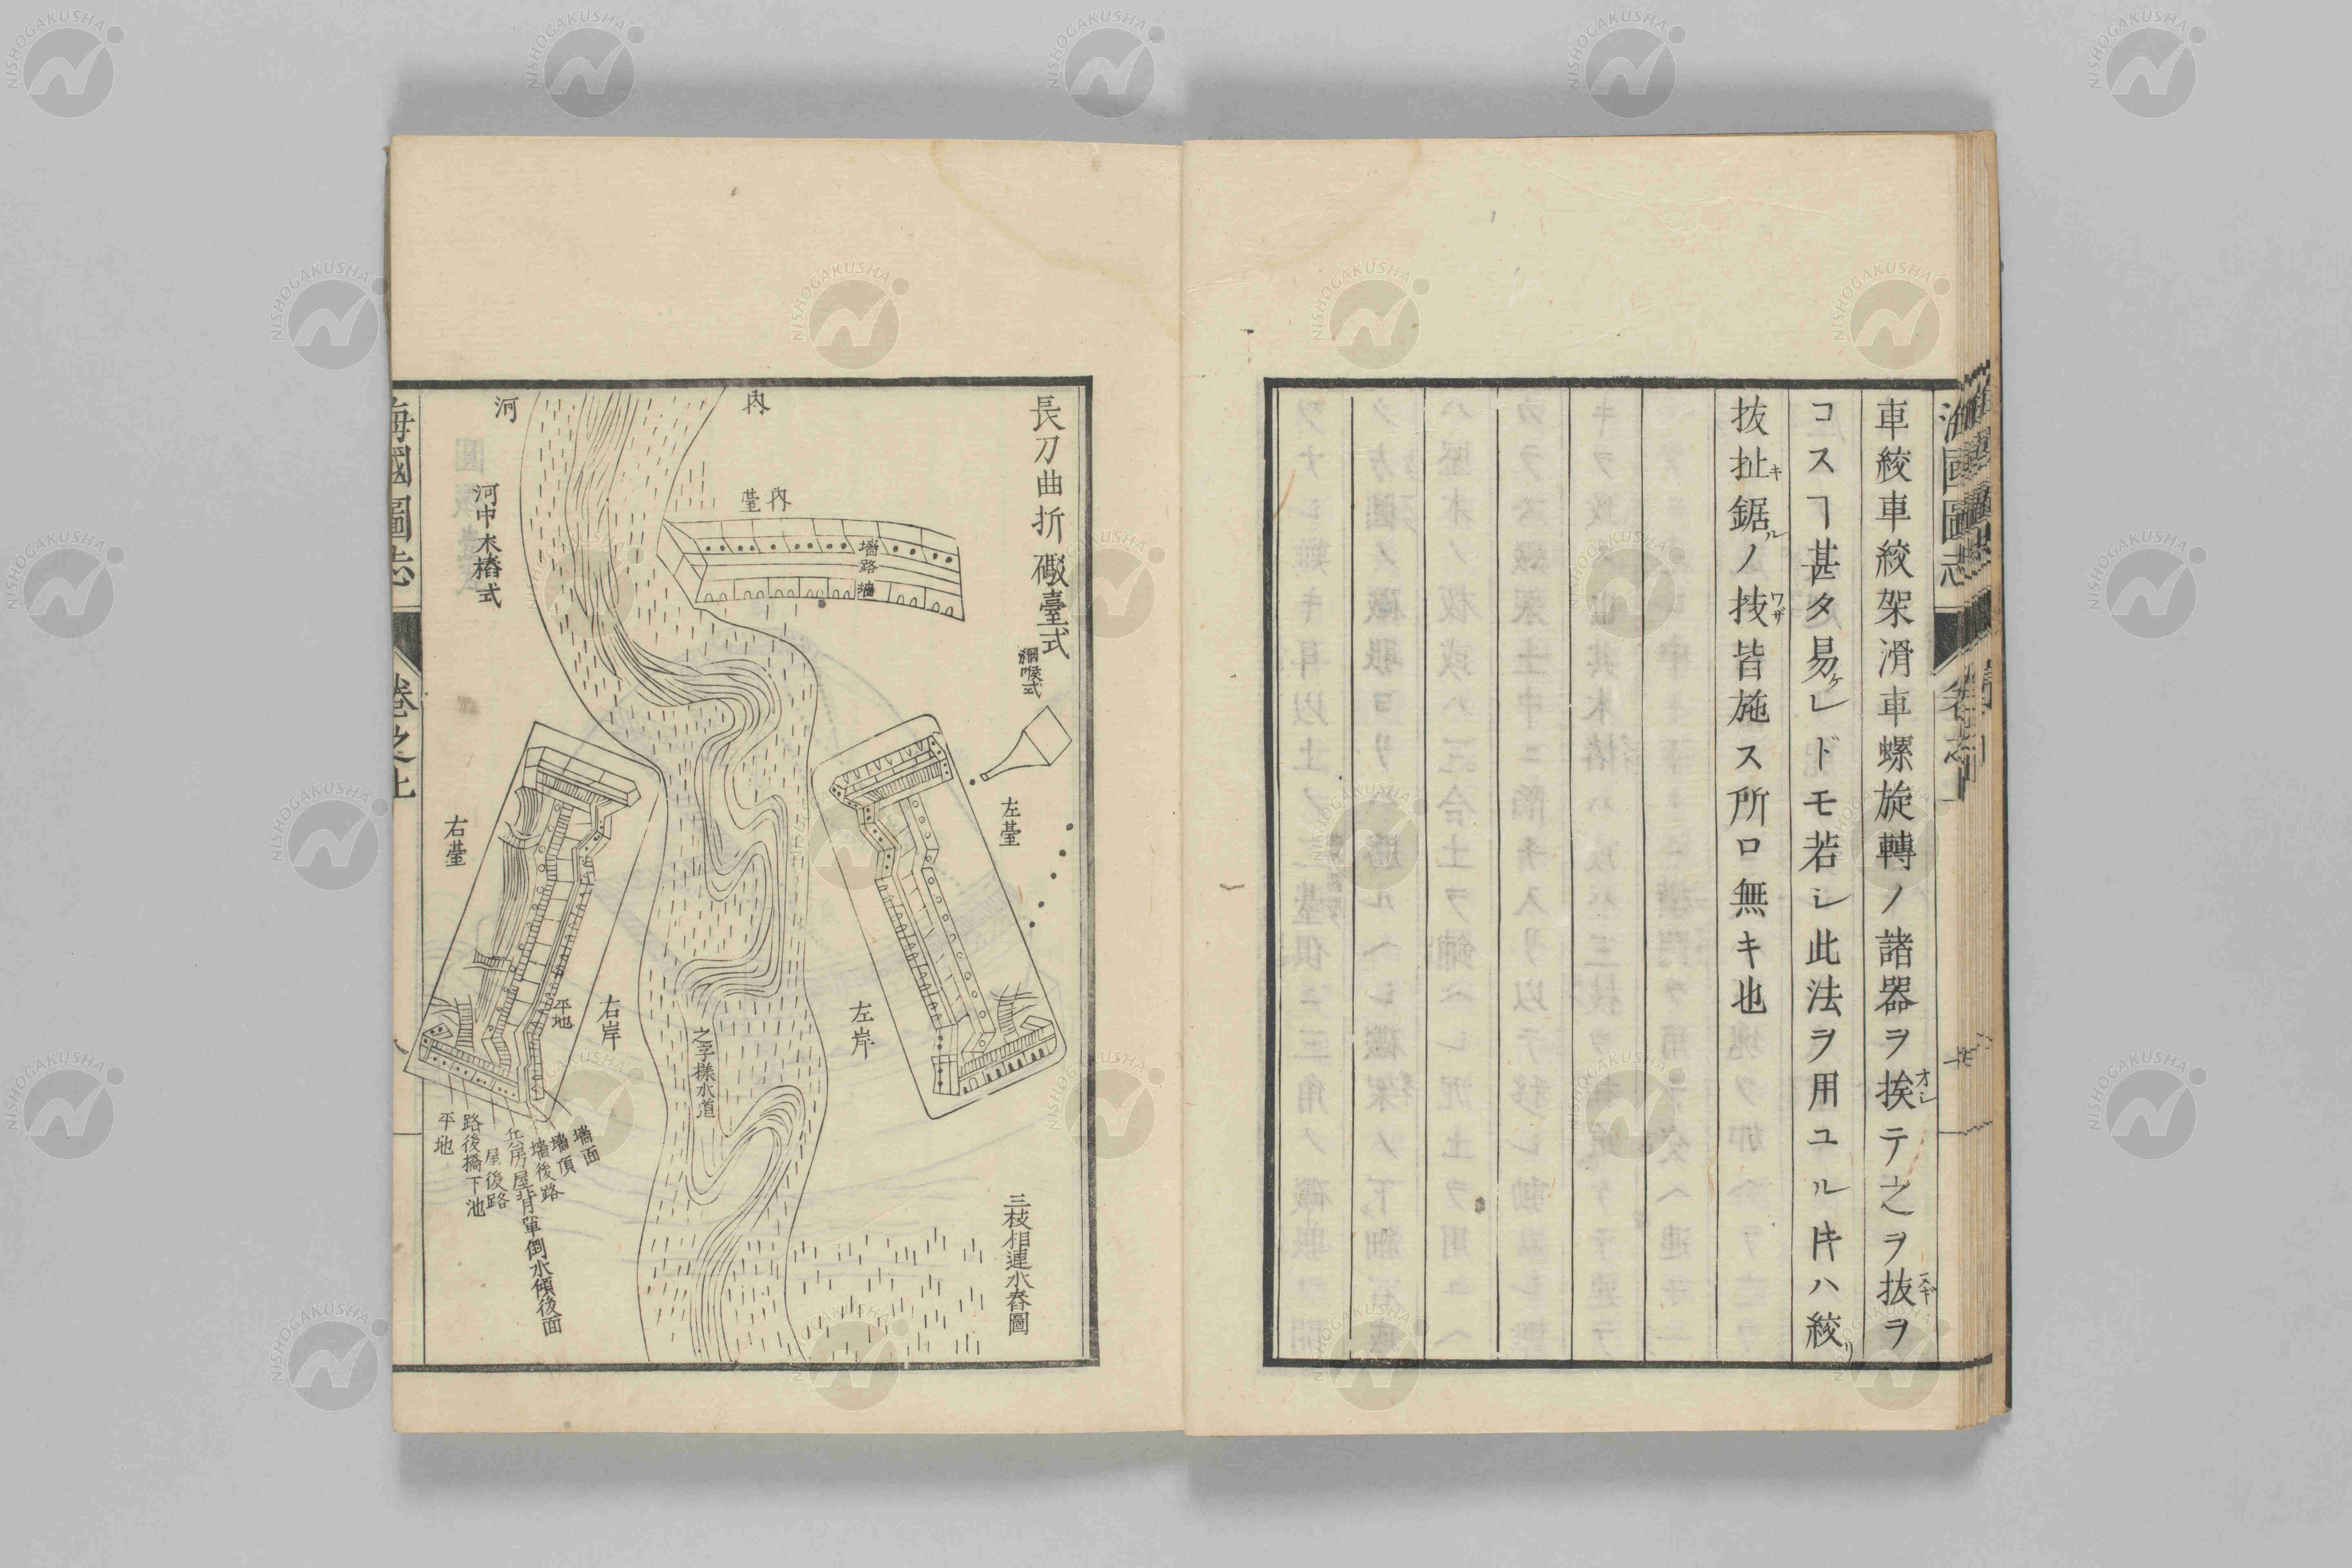 車絞車絞架滑車螺旋轉ノ諸器ヲ挨テ之ヲ抜ヲ
オシ
ヌギ
コスヿ甚タ易ケレドモ若シ此法ヲ用ユル𪜈ハ絞リ
抜扯鋸ノ技皆施ス所ロ無キ也
キ
ル
ワザ
海國圖志
長刀曲折礟臺式
網喉式
左臺
三枝相連水舂圖
內
內臺
墻路
墻
左岸
之字㨾水道
河
河中木樁式
右臺
右岸
平地
墻面
墻頂
墻後路
兵房屋背單倒水傾後面
屋後路
路後橋下池
平地
海國圖志
卷之上
NISHOGAKUSHA